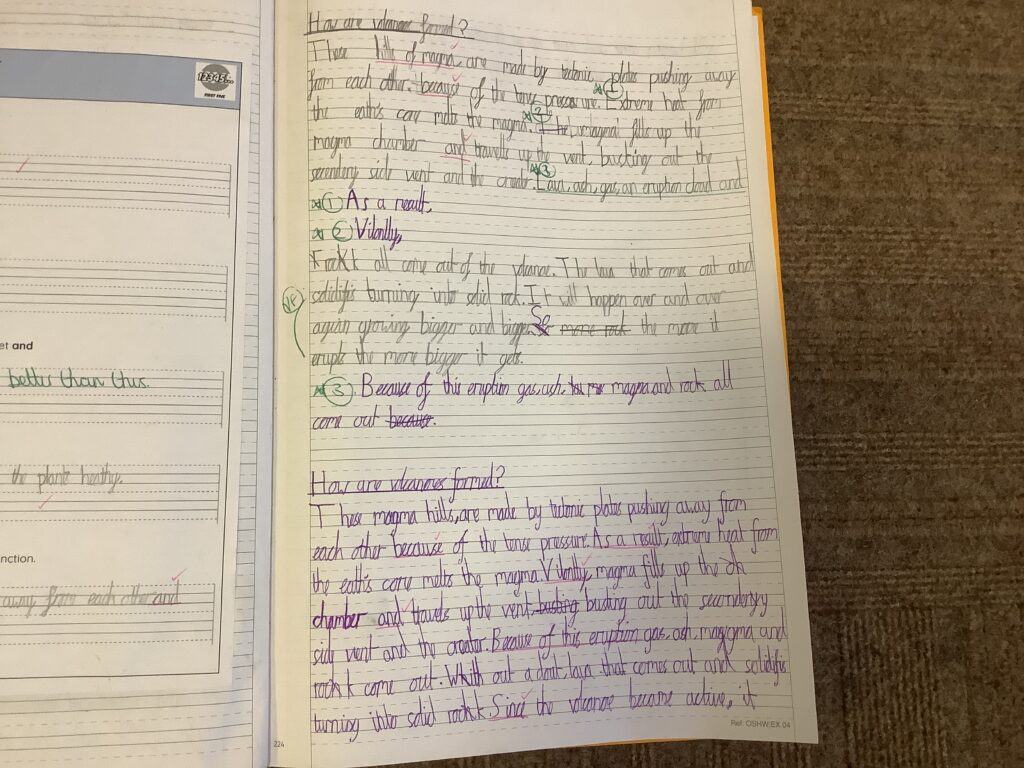 123456...
FIRST FIVE
et and
better than this.
the plants healthy.
nction.
away from each other and
How are volcanoes formed?
These hills of magna, are made by tectonic plates pushing away
from each other. because of the tense pressure. Extreme heat from
the eath's core melts the magma. The magma fills up the
magma chamber and travels up the vent, bucking out the
secendery side vent and the creator. Lava, ash, gas, an eruption cloud and
*① As a result,
*② Vilontly,
* rock all come out of the volcanoe. The lava that comes out and
solidifis turning into solid rock. It will happen over and over
agyian growing bigger and bigger. So more rock the more it
erupts the more bigger it gets.
*③. Because of this eruption gas, ash, magma and rock all
come out because.
How are volcanoes formed?
These magma hills, are made by tectonic plates pushing away from
each other because of the tense pressure. As a result, extreme heat from
the eath's core melts the magma. Vilontly, magma fills up the
chamber and travels up the vent, busting busting out the secondery
side vent and the creator. Because of this eruption gas, ash, magma and
rock come out. Whith out a dout, lava that comes out and solidifis
turning into solid rock. Since the volcanoe became active, it
224
Ref: OSHW:EX 04